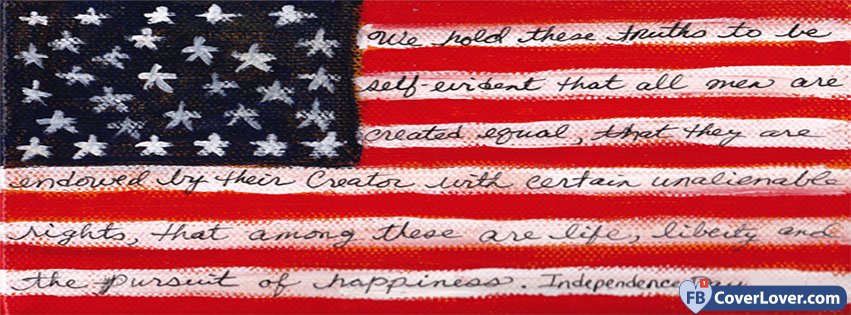 We hold these truths to be
self-evident that all men are
created equal, that they are
endowed by their Creator with certain unalienable
rights, that among these are life, liberty and
the pursuit of happiness. Independence Day
1
FB CoverLover.com